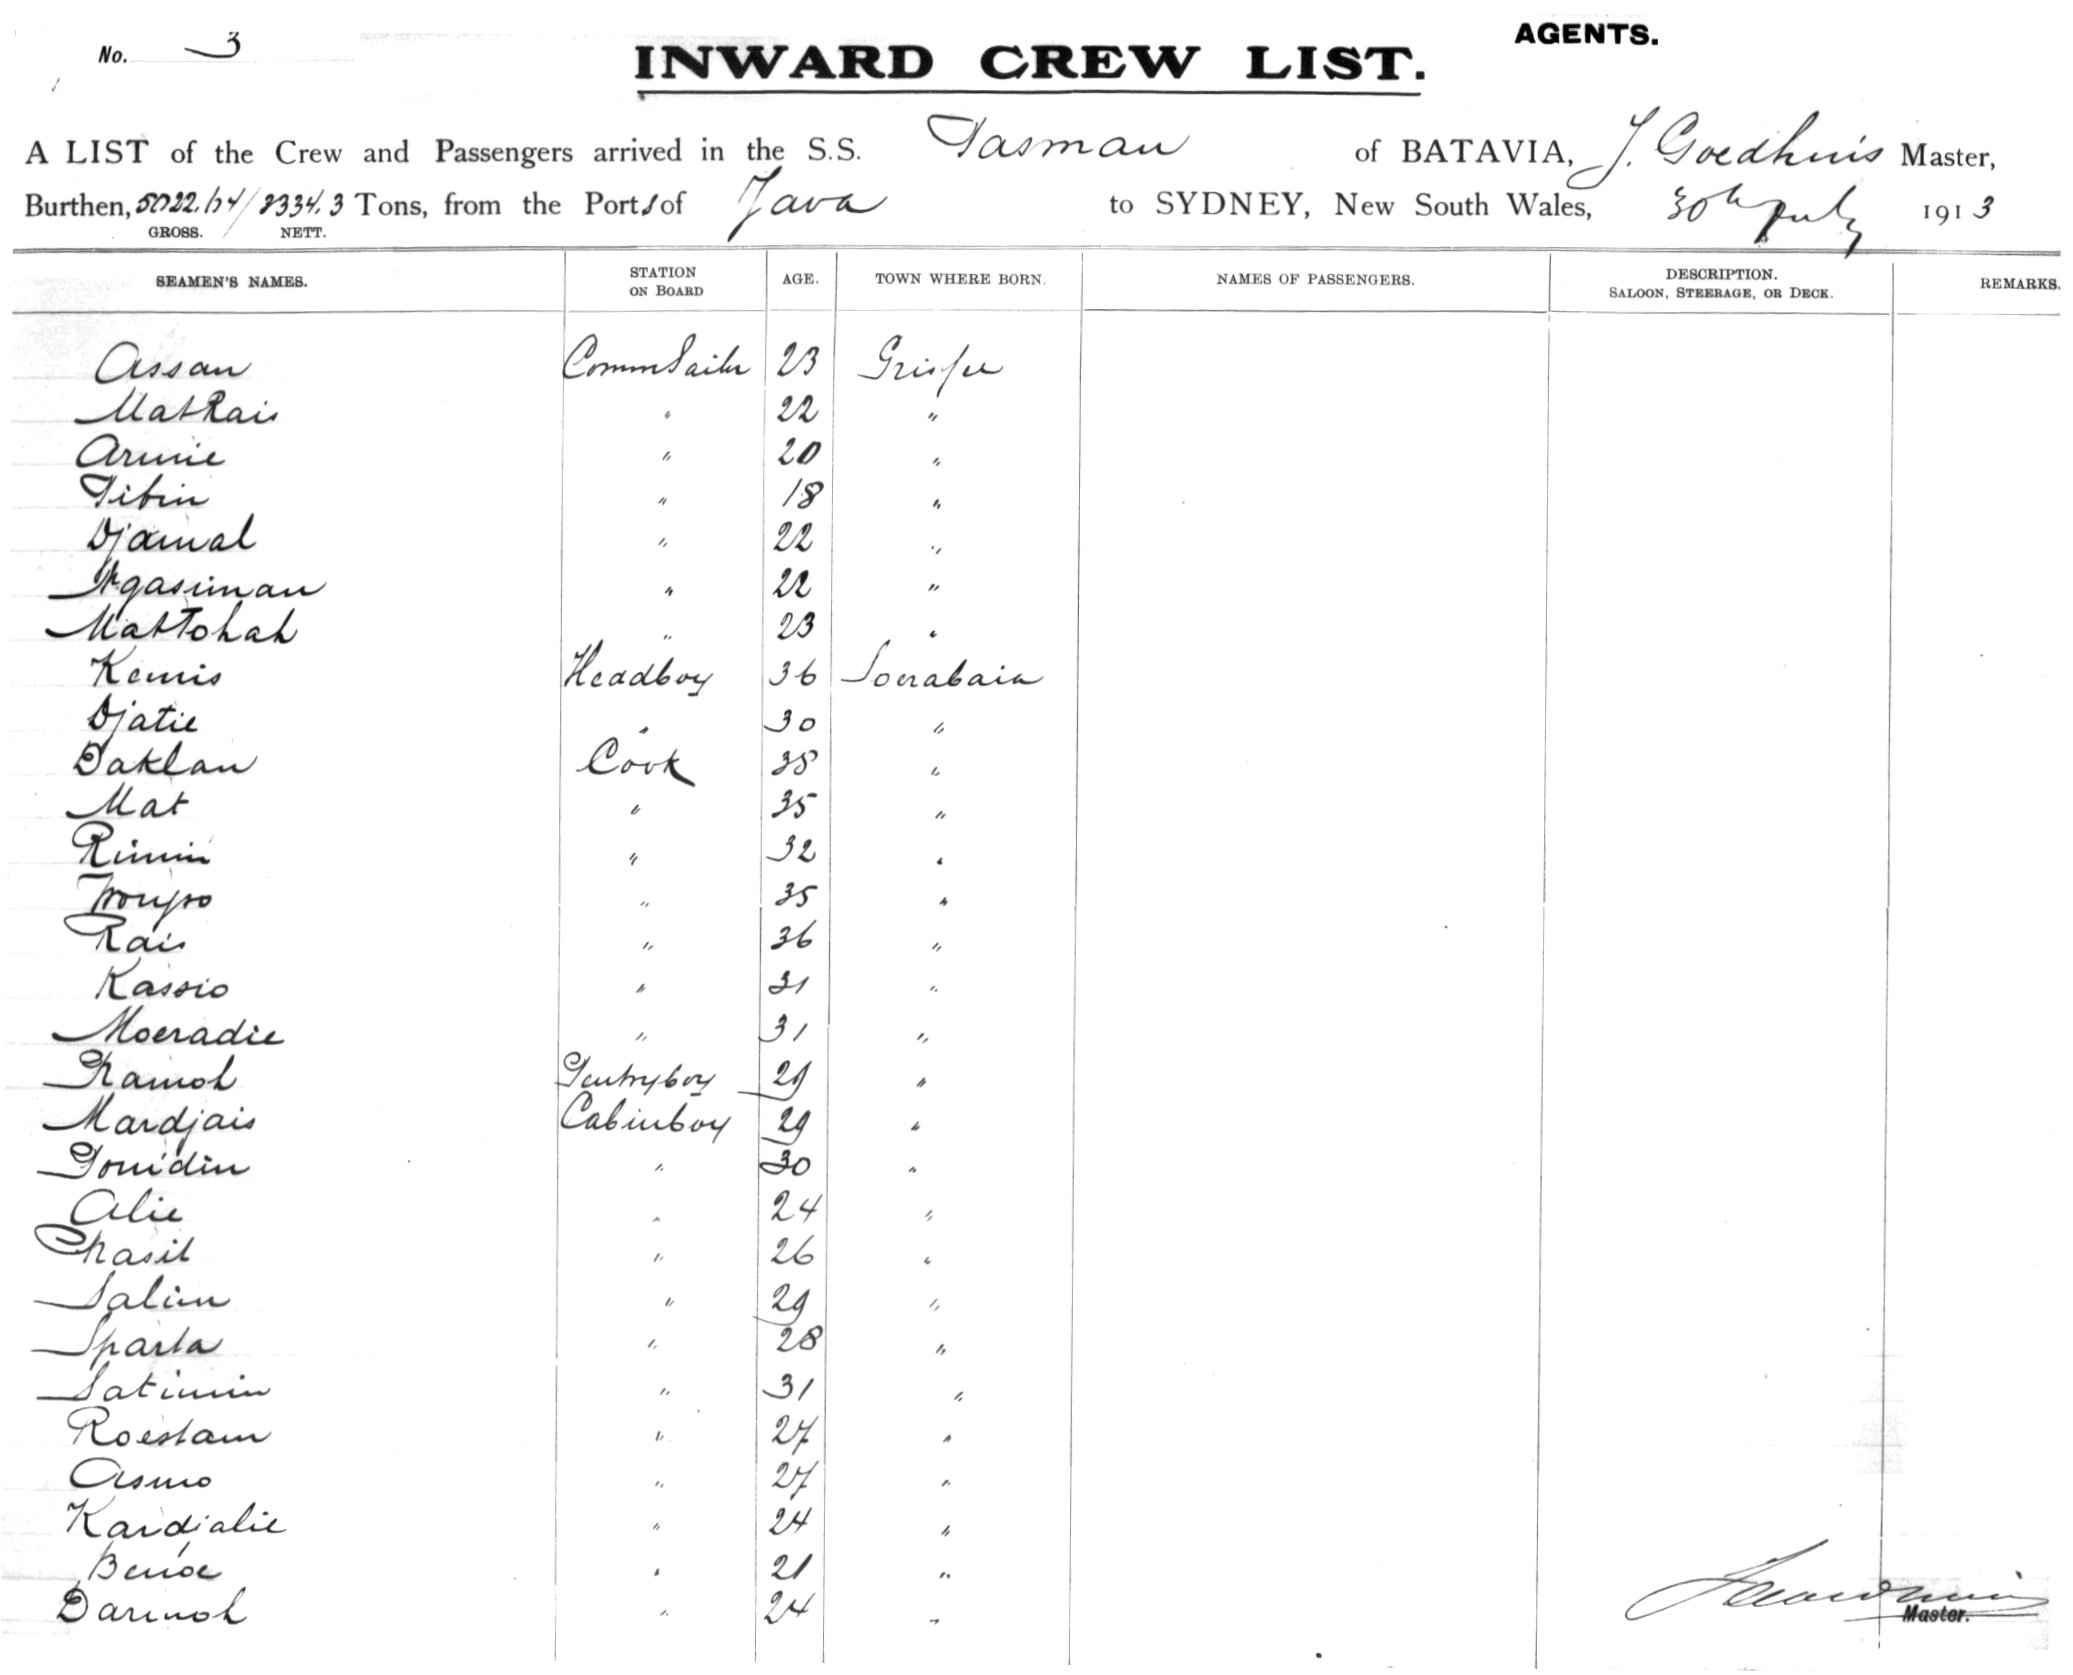 No. 3
AGENTS.
INWARD CREW LIST.
A LIST of the Crew and Passengers arrived in the S.S. Tasman of BATAVIA, J. Goedhuis Master,
Burthen, Tons, from the Ports of Java to SYDNEY, New South Wales, 30th July 1913
GROSS. NETT.
SEAMEN'S NAMES. STATION ON BOARD AGE. TOWN WHERE BORN. NAMES OF PASSENGERS. DESCRIPTION. SALOON, STEERAGE, OR DECK. REMARKS.
Assan 23
MatRais " 22 "
Armie " 20 "
Tibin " 18 "
Djamal " 22 "
Ngasiman " 22 "
MatTohah " 23 "
Kemis Headboy 36 Soerabaia
Djatie " 30 "
Daklan Cook 38 "
Mat " 35 "
Rimin " 32 "
" 35 "
Rais " 36 "
Kassio " 31 "
Moeradie " 31 "
29 "
Mardjais Cabinboy 29 "
" 30 "
Alie " 24 "
" 26 "
Salim " 29 "
Sparta " 28 "
Satimin " 31 "
Roestam " 27 "
Asmo " 27 "
Kardjalie " 24 "
" 21 "
" 24 "
Master.